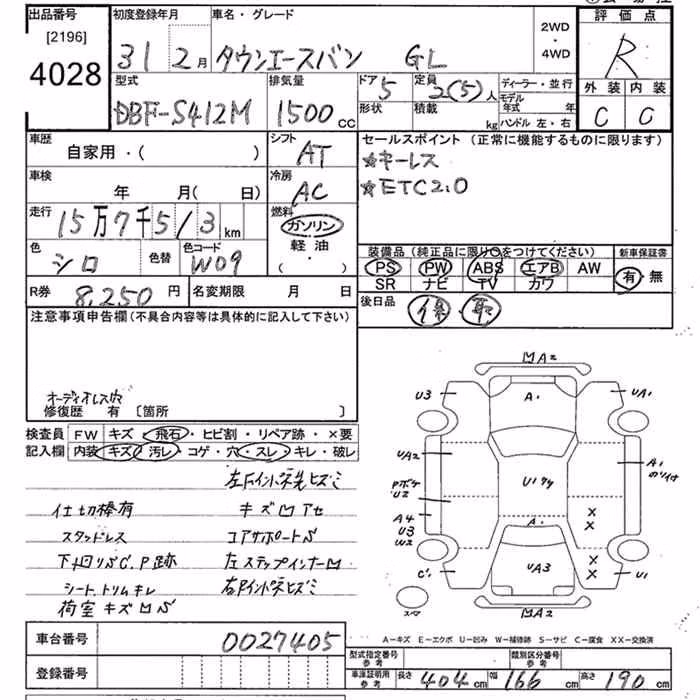 出品番号 初度登録年月 車名・グレード 評価点
[2196] 2WD
4028 31 2月 タウンエースバン GL ・4WD R
型式 排気量 ドア 定員 ディーラー・並行 外装 内装
DBF-S412M 1500cc 5 2(5)人 モデル年式 年 C C
形状 積載 kg ハンドル 左・右
車歴 シフト セールスポイント (正常に機能するものに限ります)
自家用・( ) AT ☆キーレス
車検 冷房 ☆ETC2.0
年 月(日) AC
走行 燃料
15万7千5/3km ガソリン
色 色替 色コード 軽油 装備品(純正品に限り○をつけてください) 新車保証書
シロ W09 (・) PS PW ABS エアB AW 有・無
SR ナビ TV カワ
R券 8,250円 名変期限 月 日 後日品 保・取
注意事項申告欄(不具合内容等は具体的に記入して下さい)
オーディオレス穴
修復歴 有 [箇所 ]
検査員 FW キズ・飛石・ヒビ割・リペア跡・×要
記入欄 内装 キズ・汚レ・コゲ・穴・スレ・キレ・破レ
仕切棒有 キズ凹アセ
スタッドレス コアサポートS
下回リSC.P跡 左ステップインナー凹
シート、トリムキレ
荷室キズ凹S
凹A2
U3 A・ UA1
UA2 U174 A1
Pボケ のリイケ
U2
A4 A・ × ×
U3
W2
C1 UA3 × × U1
スペア 凹A2
A－キズ E－エクボ U－凹み W－補修跡 S－サビ C－腐食 XX－交換済
車台番号 0027405 型式指定番号 参考 類別区分番号 参考
登録番号 車庫証明用 参考 長さ 404cm 幅 166cm 高さ 190cm